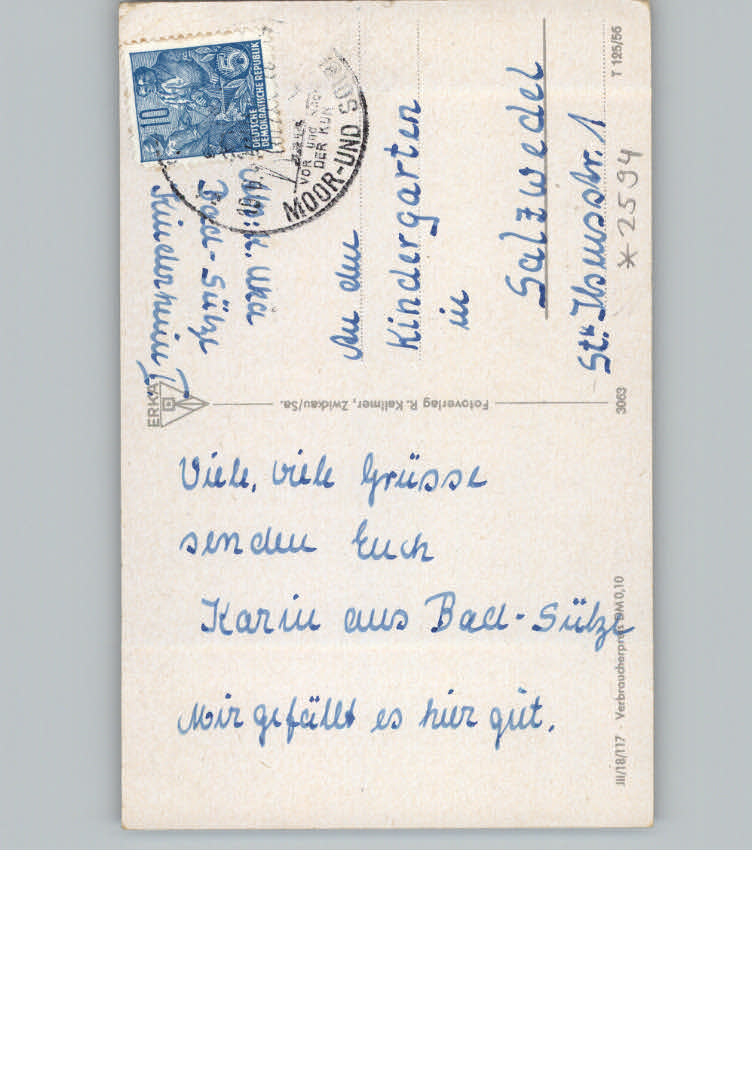 10
5
DEUTSCHE
DEMOKRATISCHE REPUBLIK
VOR und
DER KUN
MOOR-UND S
Bad-Sülze
Kinderheim I
An den
Kindergarten
in
Salzwedel
Str. 1
T 125/56
* 2594
ERKA
Fotoverlag R. Kallmer, Zwickau/Sa.
3063
Viele, viele Grüsse
senden Euch
Karin aus Bad-Sülze
Mir gefällt es hier gut.
III/18/117 · Verbraucherpreis DM 0,10